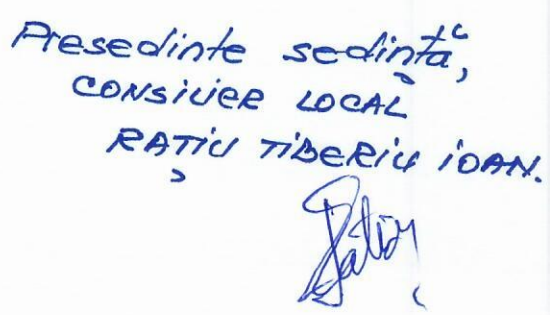 Presedinte sedință,
CONSILIER LOCAL
RAȚIU TIBERIU IOAN.